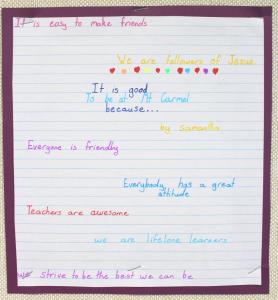 It is easy to make friends
We are followers of Jesus.
It is good
To be at Mt Carmel
because...
by samantha
Everyone is friendly
Everybody has a great
attitude
Teachers are awesome
we are lifelone learners
We strive to be the best we can be